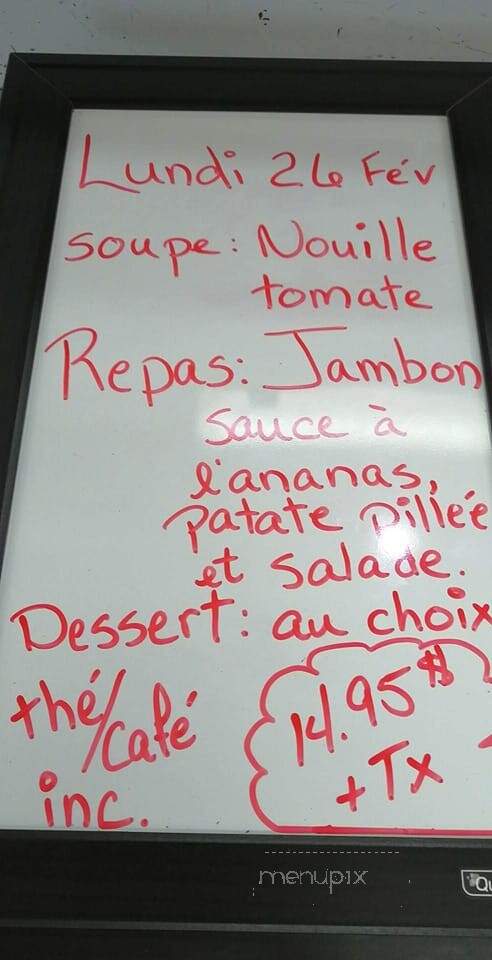 Lundi 26 Fév
soupe: Nouille
tomate
Repas: Jambon
sauce à
l'ananas,
patate pillée
et salade.
Dessert: au choix
thé/café
inc.
14.95$
+Tx
menupix
Qu